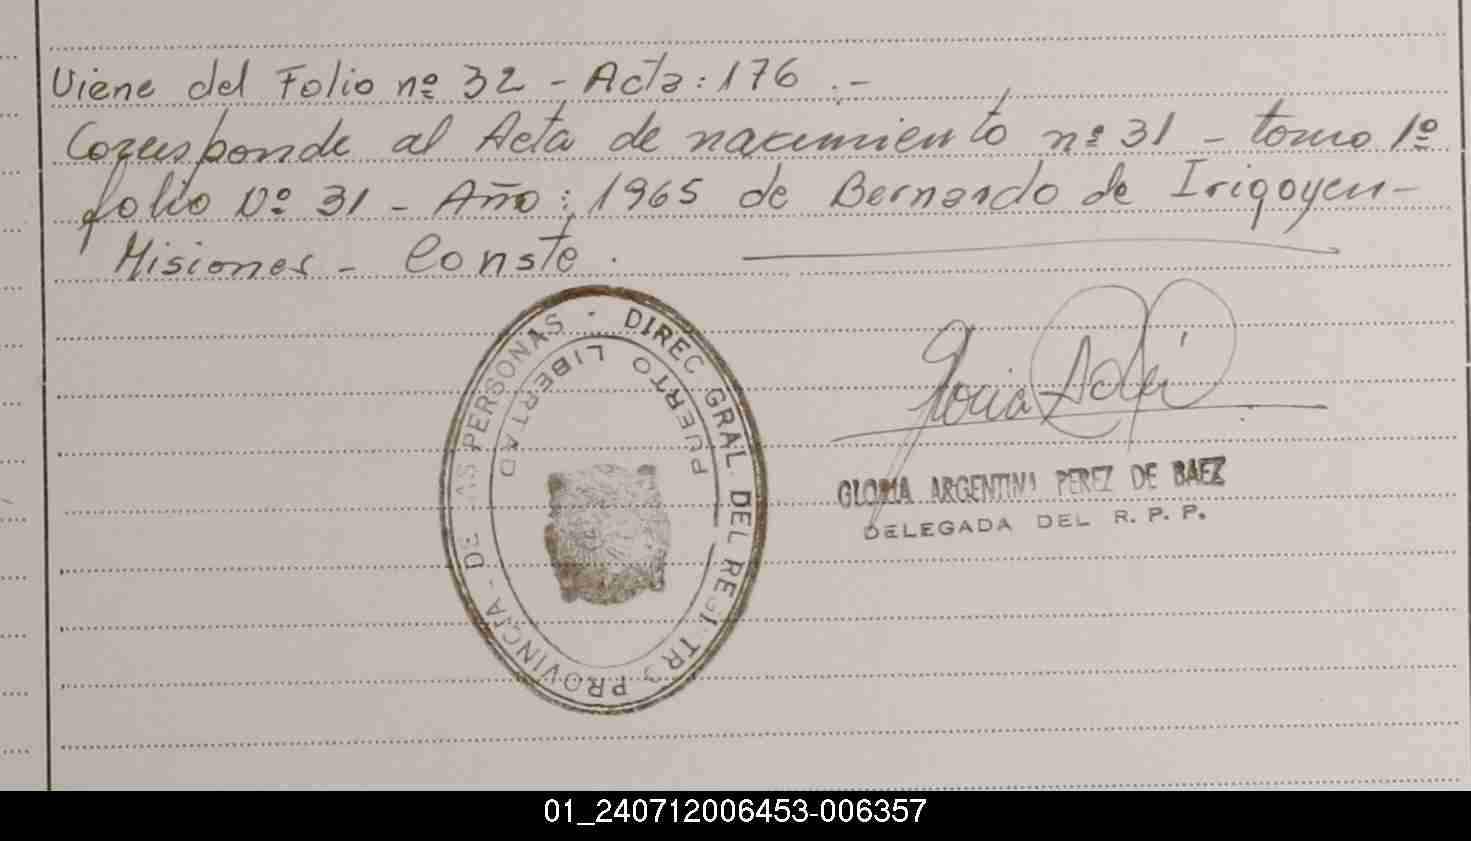 Viene del Folio nº 32 - Acta: 176 . -
Corresponde al Acta de nacimiento nº 31 - tomo 1º
folio Nº 31 - Año: 1965 de Bernardo de Irigoyen -
Misiones - Conste .
DIREC GRAL DEL REGISTRO PROVINCIAL DE LAS PERSONAS
PUERTO LIBERTAD
GLORIA ARGENTINA PEREZ DE BAEZ
DELEGADA DEL R. P. P.
01_240712006453-006357